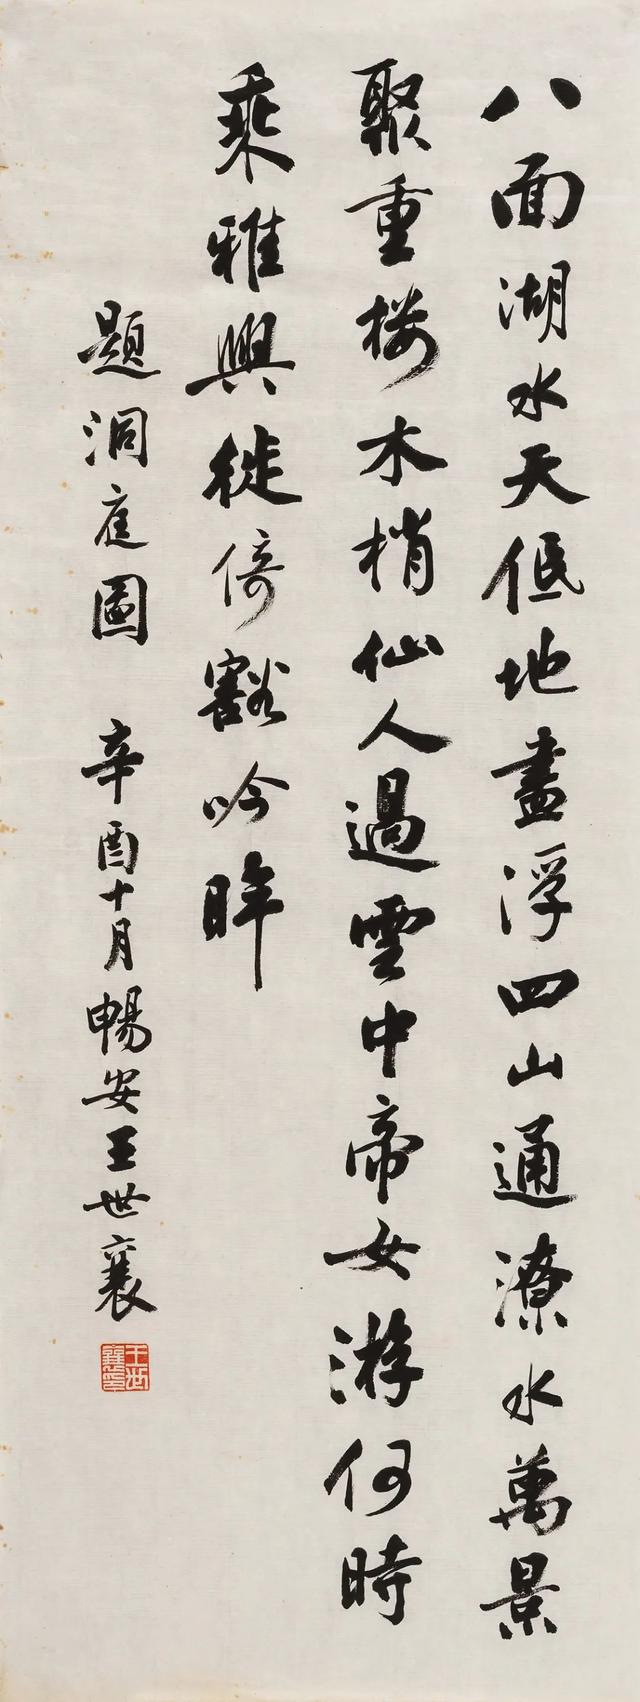 八面湖水天低地盡浮四山通潦水萬景
聚重楼木梢仙人過雲中帝女游何時
乘雅興徙倚豁吟眸
題洞庭圖 辛酉十月暢安王世襄
王世襄印